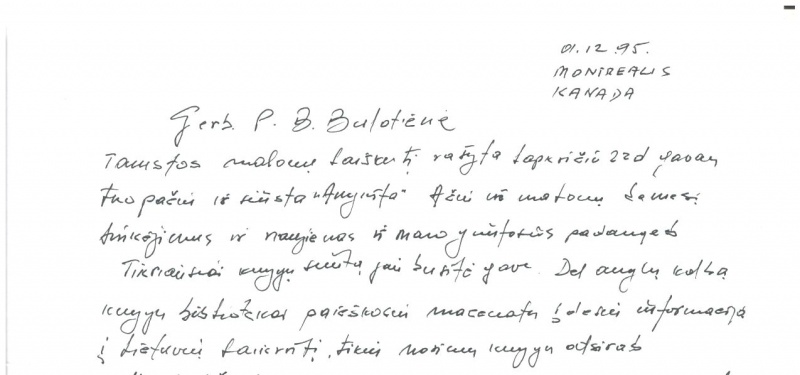 01.12.95.
MONTREALIS
KANADA
Gerb. P. B. Bulotienė
Tamstos malonų laišką rašytą lapkričio 22d gavau
tuo pačiu ir siųstą "Ameriką" Ačiū už malonų
ir naujienas iš mano gimtosios padangės
Tikriausiai knygų siuntą jau busite gavę. Dėl anglų kalba
knygų bibliotekai paieškosiu mecenatų įdėsiu informaciją
į lietuvių laikraštį, tikiu norimų knygų atsiras